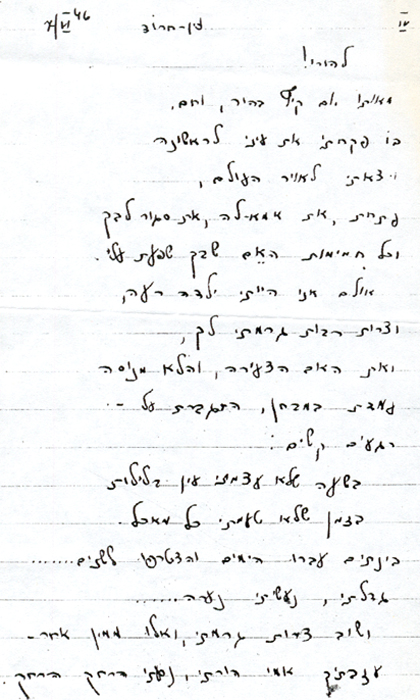 עין-חרוד
להורי!
מאותו יום קיץ בהיר, וחם,
בו פקחתי את עיני לראשונה
ויצאתי לאויר העולם,
פתחת, את אמא-לה, את סגור לבך
וכל חמימות האם שבך שפעת עלי.
אולם אני הייתי ילדה רעה,
וצרות רבות גרמתי לך,
ואת האם הצעירה, והלא מנוסה
עמדת במבחן, התגברת על -
רגעים קשים:
בשעה שלא עצמתי עין בלילות
בזמן שלא טעמתי כל מאכל.
בינתים עברו הימים והצטרפו לשנים.......
גדלתי, נעשיתי נערה......
ושוב צרות גרמתי, ואלו ממין אחר-
עזבתיך אמי הורתי, נסעתי הרחק הרחק.